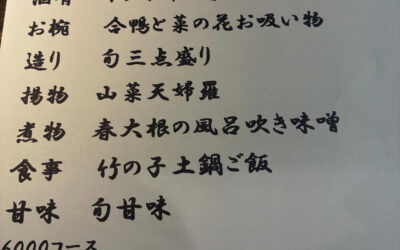 お椀 合鴨と菜の花お吸い物
造り 旬三点盛り
揚物 山菜天婦羅
煮物 春大根の風呂吹き味噌
食事 竹の子土鍋ご飯
甘味 旬甘味
6000コース